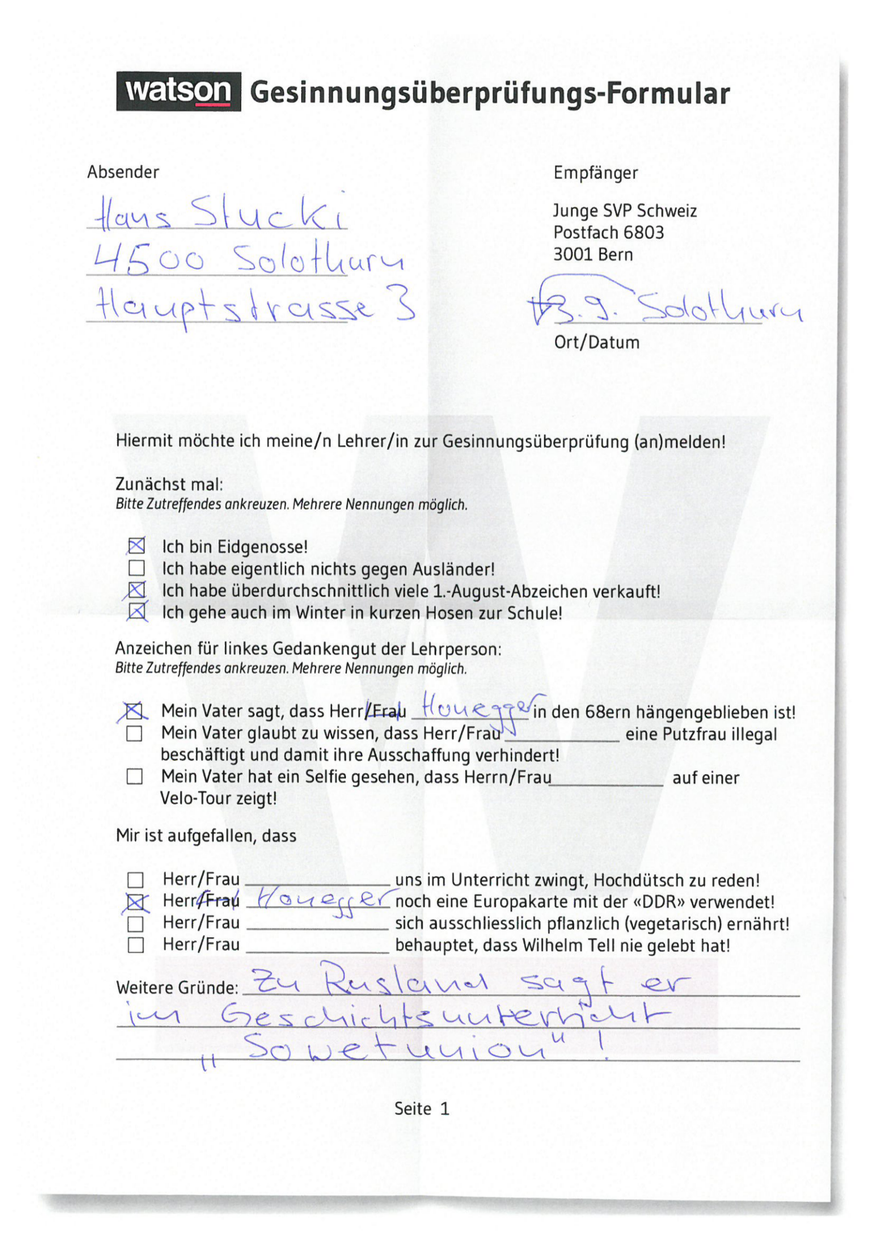 watson Gesinnungsüberprüfungs-Formular
Absender
Hans Stucki
4500 Solothurn
Hauptstrasse 3
Empfänger
Junge SVP Schweiz
Postfach 6803
3001 Bern
13.9. Solothurn
Ort/Datum
Hiermit möchte ich meine/n Lehrer/in zur Gesinnungsüberprüfung (an)melden!
Zunächst mal:
Bitte Zutreffendes ankreuzen. Mehrere Nennungen möglich.
Ich bin Eidgenosse!
Ich habe eigentlich nichts gegen Ausländer!
Ich habe überdurchschnittlich viele 1.-August-Abzeichen verkauft!
Ich gehe auch im Winter in kurzen Hosen zur Schule!
Anzeichen für linkes Gedankengut der Lehrperson:
Bitte Zutreffendes ankreuzen. Mehrere Nennungen möglich.
Mein Vater sagt, dass Herr/Frau Honegger in den 68ern hängengeblieben ist!
Mein Vater glaubt zu wissen, dass Herr/Frau eine Putzfrau illegal
beschäftigt und damit ihre Ausschaffung verhindert!
Mein Vater hat ein Selfie gesehen, dass Herrn/Frau auf einer
Velo-Tour zeigt!
Mir ist aufgefallen, dass
Herr/Frau uns im Unterricht zwingt, Hochdütsch zu reden!
Herr/Frau Honegger noch eine Europakarte mit der «DDR» verwendet!
Herr/Frau sich ausschliesslich pflanzlich (vegetarisch) ernährt!
Herr/Frau behauptet, dass Wilhelm Tell nie gelebt hat!
Weitere Gründe: Zu Rusland sagt er
im Geschichtsunterricht
„Sowetunion“!
Seite 1